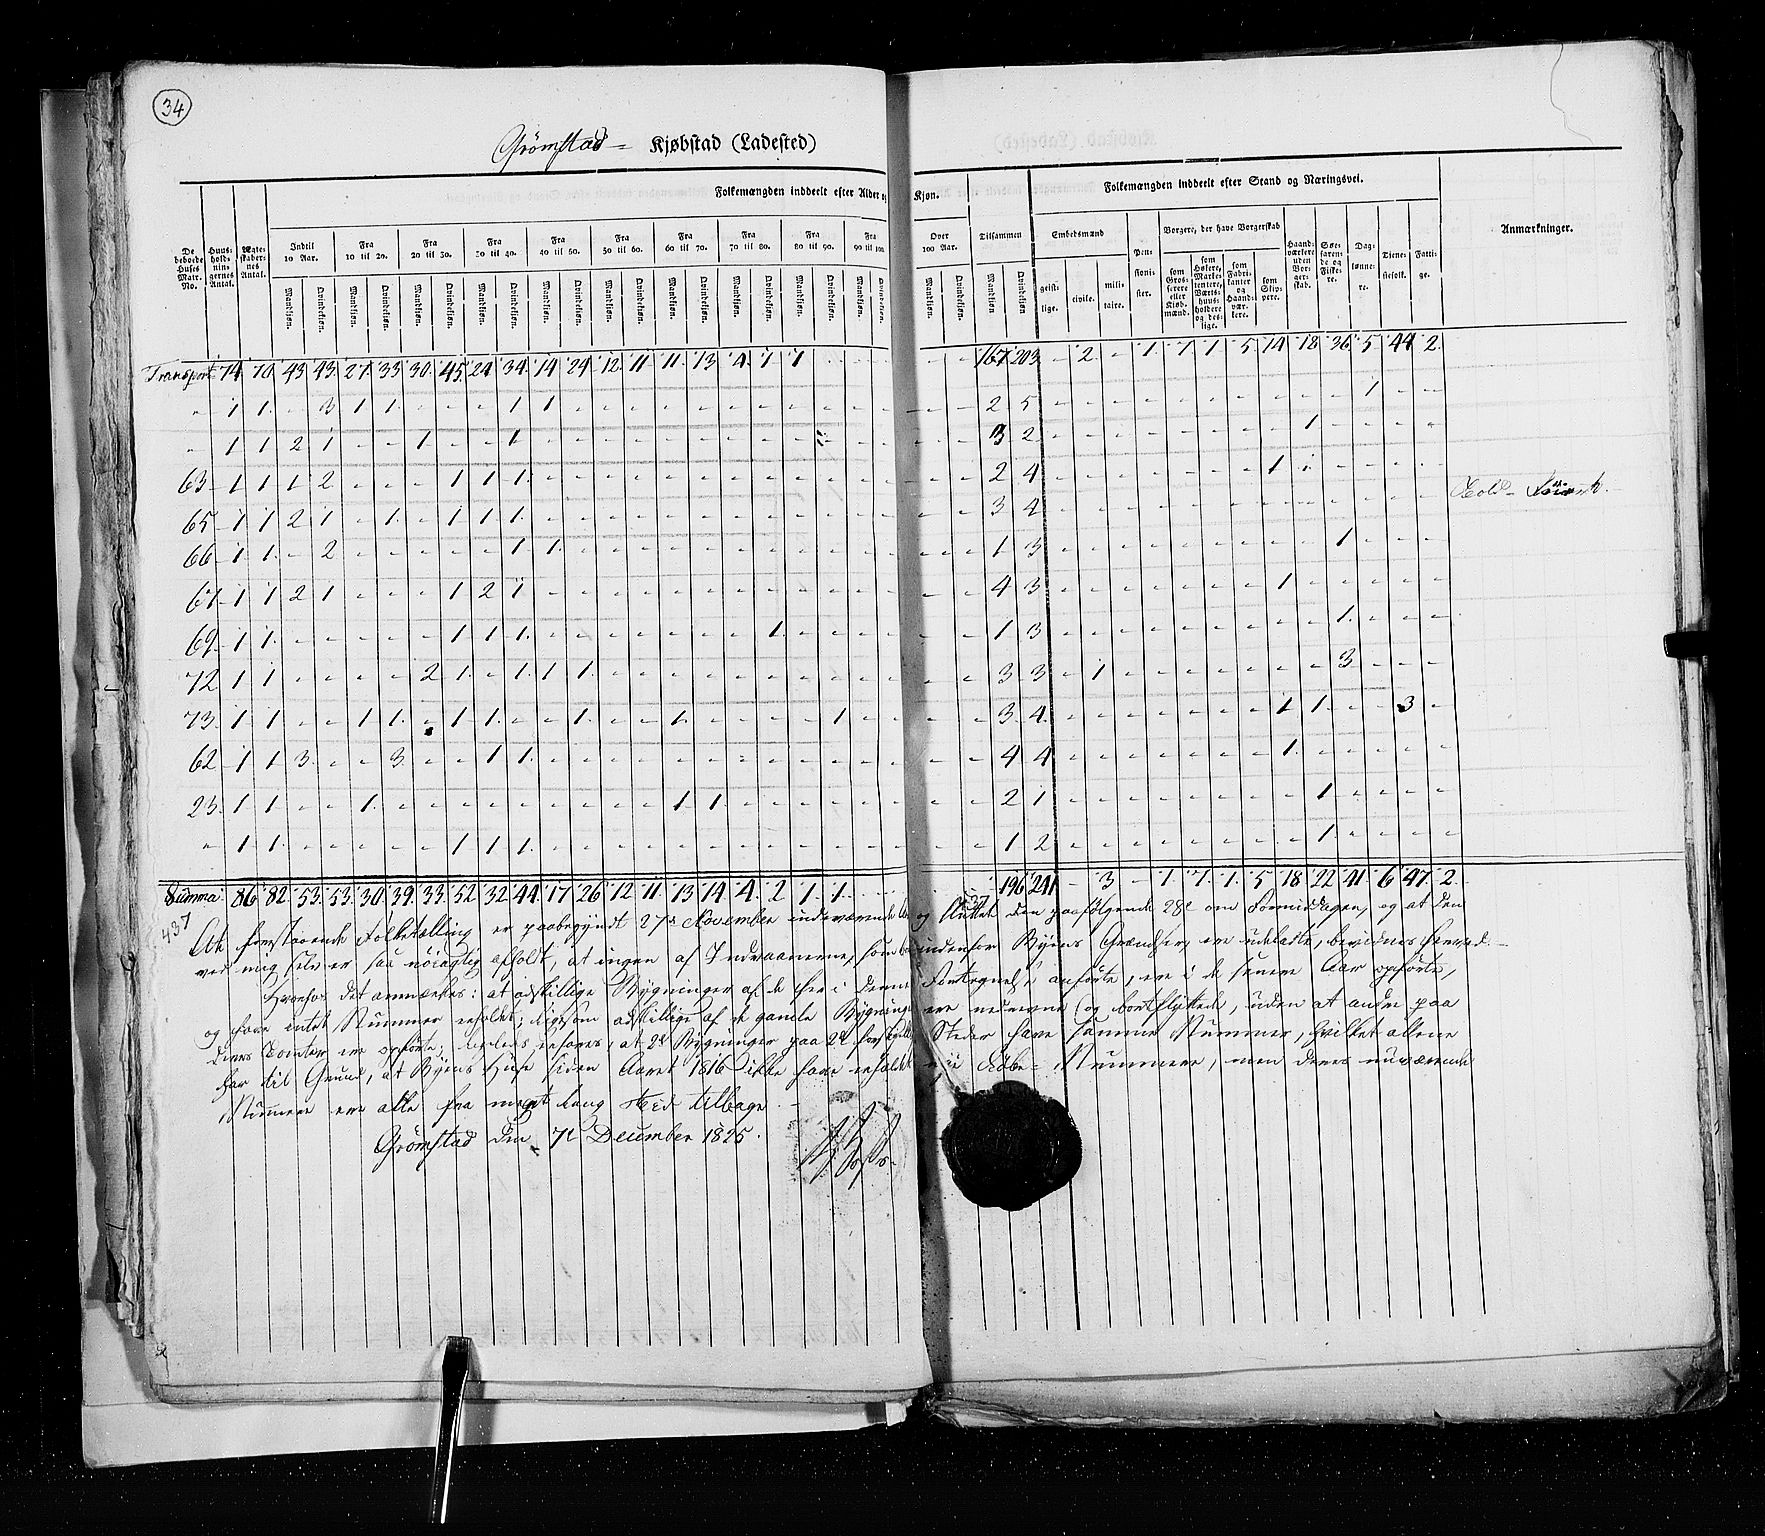 34
Grömstad Kjøbstad (Ladested)
Folkemængden inddeelt efter Alder og Kjøn. Folkemængden inddeelt efter Stand og Næringsvei.
De beboede Huses Matr. No. Huusholdningernes Antal. Ægteskabernes Antal. Indtil 10 Aar. Fra 10 til 20. Fra 20 til 30. Fra 30 til 40. Fra 40 til 50. Fra 50 til 60. Fra 60 til 70. Fra 70 til 80. Fra 80 til 90. Fra 90 til 100. Over 100 Aar. Tilsammen Embedsmænd Pensionister. Borgere, der have Borgerskab Haandværkere uden Borgerskab. Søefarende og Fiskere. Daglønnere. Tjenestefolk. Fattige. Anmærkninger.
Mandkjøn. Qvindekjøn. Mandkjøn. Qvindekjøn. Mandkjøn. Qvindekjøn. Mandkjøn. Qvindekjøn. Mandkjøn. Qvindekjøn. Mandkjøn. Qvindekjøn. Mandkjøn. Qvindekjøn. Mandkjøn. Qvindekjøn. Mandkjøn. Qvindekjøn. Mandkjøn. Qvindekjøn. Mandkjøn. Qvindekjøn. Mandkjøn. Qvindekjøn. geistlige. civile. militaire. som Grosserere eller Kjøbmænd. som Høkere, Marketentere, Værtshuusholdere og deslige. som Fabrikanter og Haandværkere. som Skippere.
Transport 74 70 43 43 27 33 30 45 24 34 14 24 12 11 11 13 4 1 1 167 203 - 2 - 1 7 1 5 14 18 36 5 44 2
" 1 1 - 3 1 1 - - - 1 1 - 2 5 - 1 -
" 1 1 2 1 - - 1 - - 1 - 3 2 - 1 -
63 1 1 1 2 - - - 1 1 1 - 2 4 - 1 -
65 1 1 2 1 - 1 - 1 1 1 - 3 4 -
66 1 1 - 2 - - - - - 1 1 - 1 3 - 1 -
67 1 1 2 1 - - - 1 2 1 - 4 3 - 1 -
69 1 1 - - - - - 1 1 1 - 1 - 1 3 - 1 -
72 1 1 - - - - 2 1 - 1 1 1 - 3 3 - 1 - 3 -
73 1 1 - - 1 1 - 1 1 - - 1 - 1 - 1 - 3 4 - 1 1 - - 3 -
62 1 1 3 - - 3 - - 1 1 - 4 4 - 1 -
23 1 1 - - 1 - 1 1 - 2 1 - 1 -
" 1 1 - - - - - 1 1 1 - 1 2 - 1 -
Summa 86 82 53 53 30 39 33 52 32 44 17 26 12 11 13 14 4 2 1 1 196 241 - 3 - 1 7 1 5 18 22 41 6 47 2
437
At foranstaaende Folketælling er paabegyndt 27de November indeværende og sluttet den paafølgende 28de om Formiddagen, og at den
ved mig selv er saa nöiagtig afholdt, at ingen af Indvaanerne, som indenfor Byens Grændser, ere udeladte, bevidnes herved.
Hvorhos det anmærkes: at adskillige Bygninger af de her i denne Fortegnelse anførte, ere i de senere Aar opførte,
og have intet Nummer erholdt; ligesom adskillige af de gamle Bygninger ere nedrevne (og bortflyttede, uden at andre paa
deres Tomter ere opførte; ligeledes at 2de Bygninger paa 2de forskjellige Steder have samme Nummer, hvilket allene
har til Grund, at Byens Huse siden Aaret 1816 ikke have erholdt nye Nummere, men deres nuværende
Nummere ere alle fra meget lang Tid tilbage.
Grömstad den 7de December 1825.